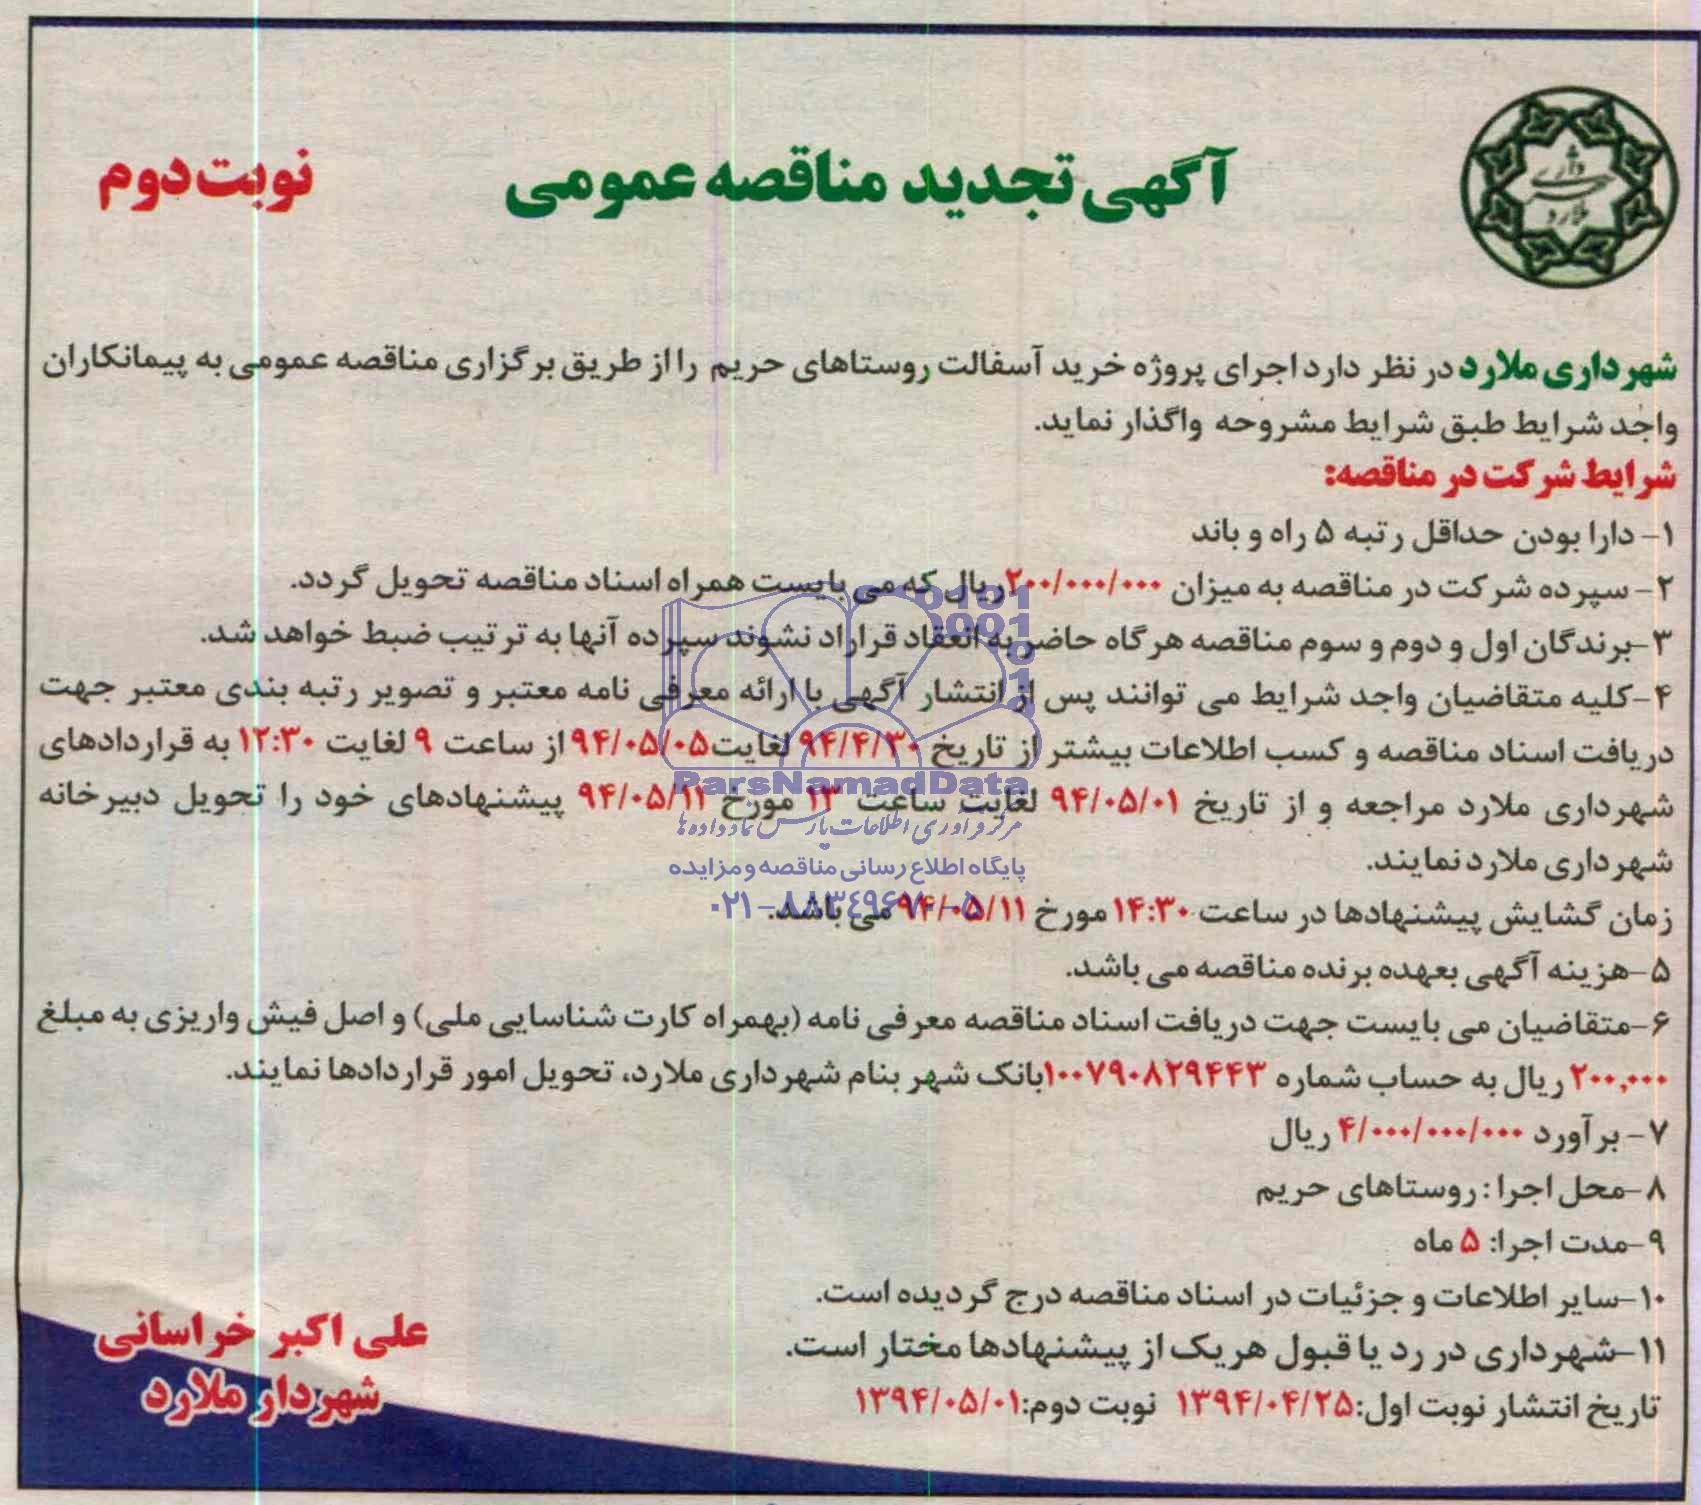 شهرداری ملارد
آگهی تجدید مناقصه عمومی
نوبت دوم
شهرداری ملارد در نظر دارد اجرای پروژه خرید آسفالت روستاهای حریم را از طریق برگزاری مناقصه عمومی به پیمانکاران
واجد شرایط طبق شرایط مشروحه واگذار نماید.
شرایط شرکت در مناقصه:
۱- دارا بودن حداقل رتبه ۵ راه و باند
۲- سپرده شرکت در مناقصه به میزان ۲۰۰/۰۰۰/۰۰۰ریال که می بایست همراه اسناد مناقصه تحویل گردد.
۳-برندگان اول و دوم و سوم مناقصه هرگاه حاضر به انعقاد قراراد نشوند سپرده آنها به ترتیب ضبط خواهد شد.
۴-کلیه متقاضیان واجد شرایط می توانند پس از انتشار آگهی با ارائه معرفی نامه معتبر و تصویر رتبه بندی معتبر جهت
دریافت اسناد مناقصه و کسب اطلاعات بیشتر از تاریخ ۹۴/۴/۳۰ لغایت۹۴/۰۵/۰۵ از ساعت ۹ لغایت ۱۲:۳۰ به قراردادهای
شهرداری ملارد مراجعه و از تاریخ ۹۴/۰۵/۰۱ لغایت ساعت ۱۳ مورخ ۹۴/۰۵/۱۱ پیشنهادهای خود را تحویل دبیرخانه
شهرداری ملارد نمایند.
زمان گشایش پیشنهادها در ساعت ۱۴:۳۰ مورخ ۹۴/۰۵/۱۱ می باشد.
۵-هزینه آگهی بعهده برنده مناقصه می باشد.
۶-متقاضیان می بایست جهت دریافت اسناد مناقصه معرفی نامه (بهمراه کارت شناسایی ملی) و اصل فیش واریزی به مبلغ
۲۰۰,۰۰۰ ریال به حساب شماره ۱۰۰۷۹۰۸۲۹۴۴۳بانک شهر بنام شهرداری ملارد، تحویل امور قراردادها نمایند.
۷- برآورد ۴/۰۰۰/۰۰۰/۰۰۰ ریال
۸-محل اجرا : روستاهای حریم
۹-مدت اجرا: ۵ ماه
۱۰-سایر اطلاعات و جزئیات در اسناد مناقصه درج گردیده است.
۱۱-شهرداری در رد یا قبول هریک از پیشنهادها مختار است.
تاریخ انتشار نوبت اول:۱۳۹۴/۰۴/۲۵ نوبت دوم:۱۳۹۴/۰۵/۰۱
علی اکبر خراسانی
شهردار ملارد
ParsNamadData
مرکز فرآوری اطلاعات پارس نماد داده ها
پایگاه اطلاع رسانی مناقصه و مزایده
۰۲۱-۸۸۳۴۹۶۷۰-۵